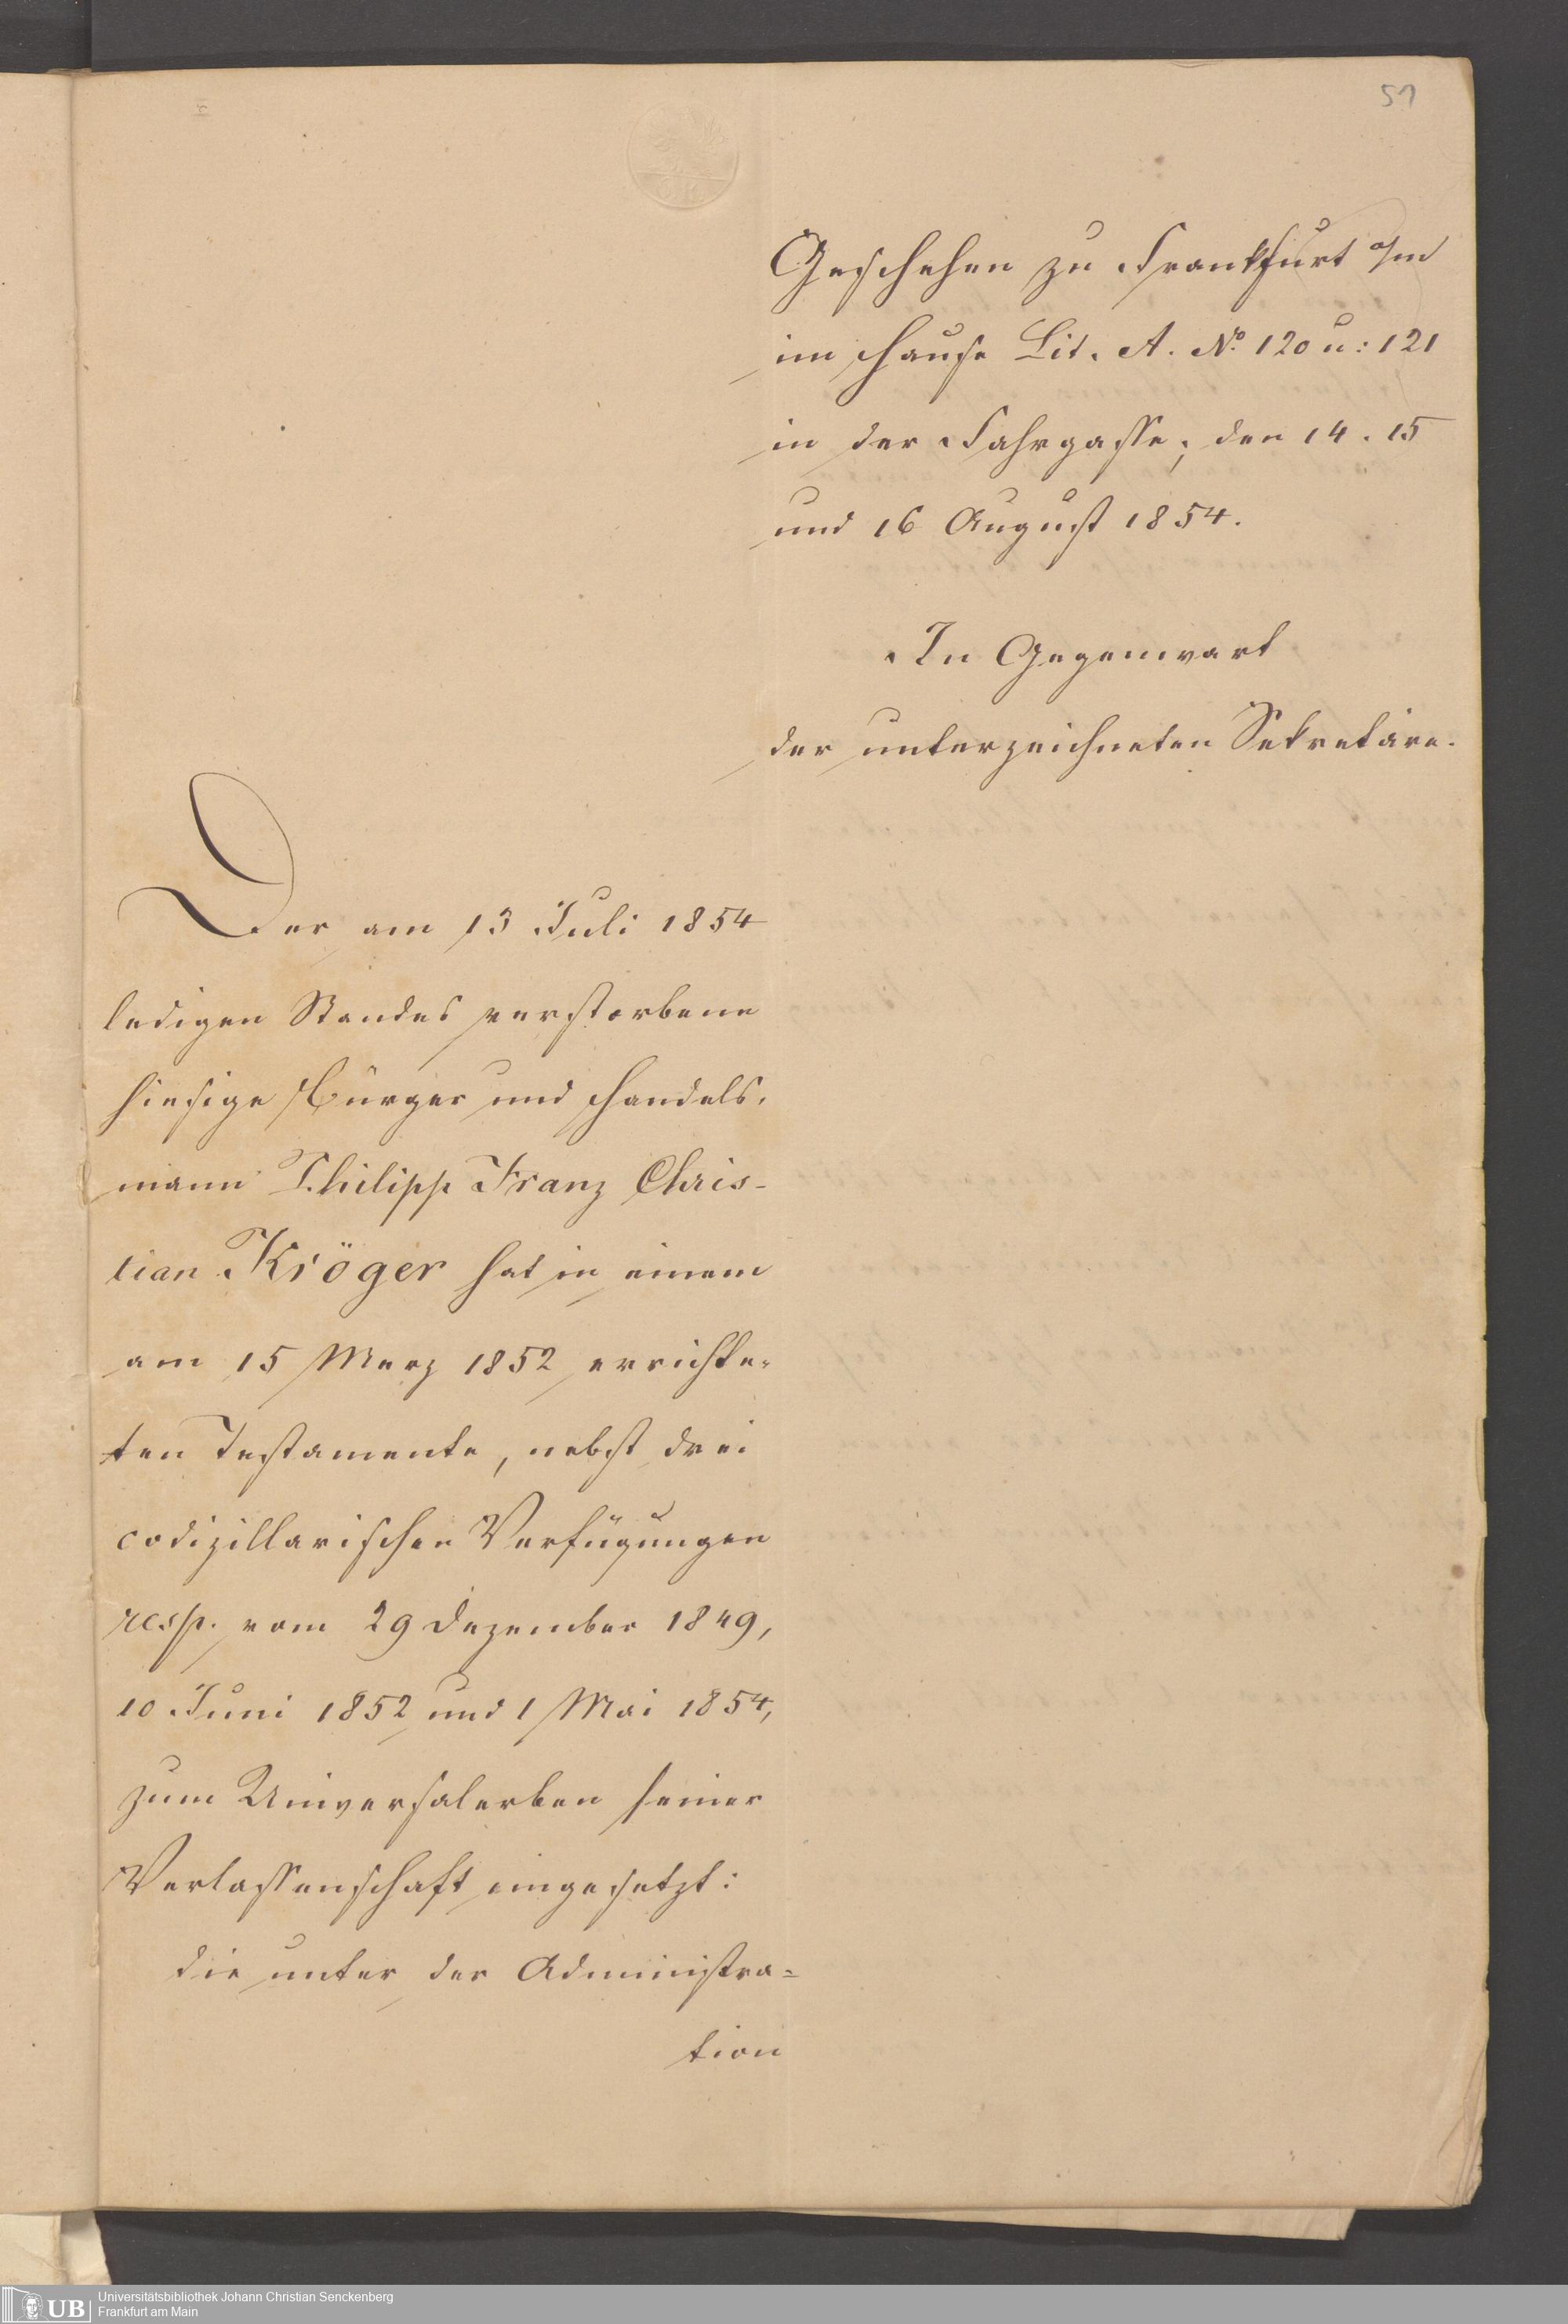 51
Geschehen zu Frankfurt a/m
im Hause Lit. A. No. 120 u: 121
in der Fahrgasse, den 14. 15
und 16 August 1854.
In Gegenwart
der unterzeichneten Sekretäre.
Der am 13 Juli 1854
ledigen Standes verstorbene
hiesige Bürger und Handels-
mann Philipp Franz Chris-
tian Kröger hat in einem
am 15 Merz 1852 errichte-
ten Testamente, nebst drei
codizillarischen Verfügungen
resp. vom 29 Dezember 1849,
10 Juni 1852 und 1 Mai 1854,
zum Universalerben seiner
Verlassenschaft eingesetzt:
die unter der Administra=
tion
UB
Universitätsbibliothek Johann Christian Senckenberg
Frankfurt am Main